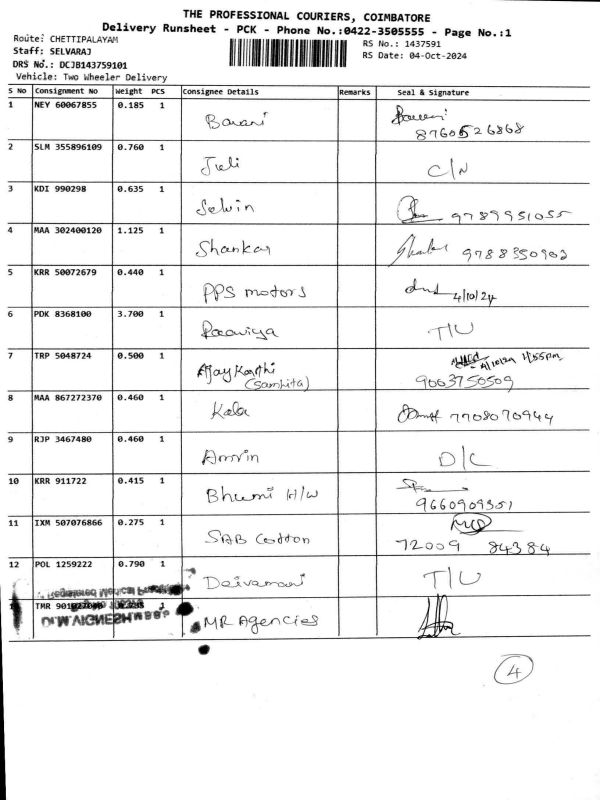 THE PROFESSIONAL COURIERS, COIMBATORE
Delivery Runsheet - PCK - Phone No.:0422-3505555 - Page No.:1
Route: CHETTIPALAYAM
RS No.: 1437591
Staff: SELVARAJ
RS Date: 04-Oct-2024
DRS No.: DCJB143759101
Vehicle: Two Wheeler Delivery
S No Consignment No Weight PCS Consignee Details Remarks Seal & Signature
1 NEY 60067855 0.185 1 Bavani
8760526868
2 SLM 355896109 0.760 1 Juli C/N
3 KDI 990298 0.635 1 Selvin 9789951055
4 MAA 302400120 1.125 1 Shankar 9788350902
5 KRR 50072679 0.440 1 PPS motors 4/10/24
6 PDK 8368100 3.700 1 T/U
7 TRP 5048724 0.500 1 Ajay Karthi 4/10/24 1:55pm
(Samhita) 9003750509
8 MAA 867272370 0.460 1 Kala 7708070944
9 RJP 3467480 0.460 1 Amrin D/C
10 KRR 911722 0.415 1 Bhumi H/W
9660909351
11 IXM 507076866 0.275 1 SAB Cotton
72009 84384
12 POL 1259222 0.790 1 Deivamani T/U
Registered Medical
TMR 1 MR Agencies
Dr.M.VIGNESH,M.B.B.S
4